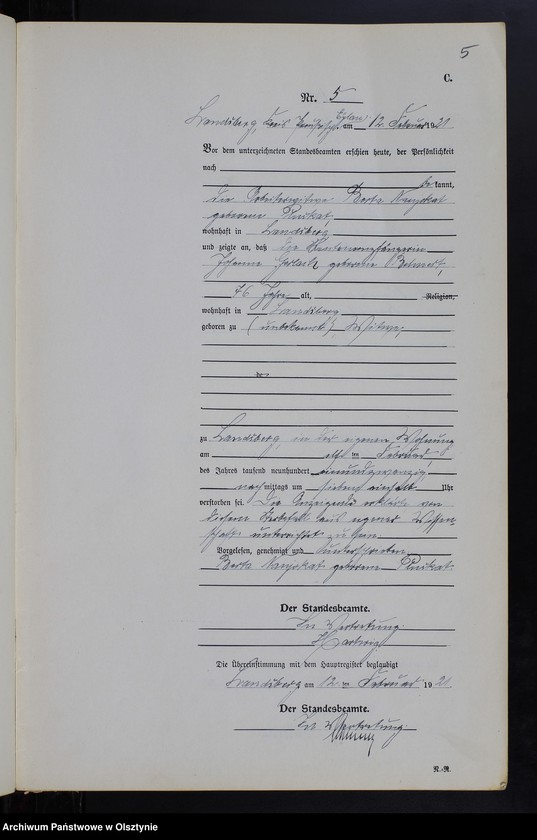 5
C.
Nr. 5
Landsberg, Kreis Pr. Eylau am 12. Februar 1921.
Vor dem unterzeichneten Standesbeamten erschien heute, der Persönlichkeit
nach
be kannt,
die Berta
geborene
wohnhaft in Landsberg
und zeigte an, daß die Rentenempfängerin
Johanna Gerlach geborene
76 Jahre alt, Religion,
wohnhaft in Landsberg
geboren zu (unbekannt), Witwe,
zu Landsberg, in der eigenen Wohnung
am elf ten Februar
des Jahres tausend neunhundert einundzwanzig
nach mittags um sieben einhalb Uhr
verstorben sei. Die Anzeigende erklärte von
diesem Sterbefall aus eigener Wissen
schaft unterrichtet zu sein.
Vorgelesen, genehmigt und unterschrieben
Berta geborene
Der Standesbeamte.
In Vertretung
Hartwig
Die Übereinstimmung mit dem Hauptregister beglaubigt
Landsberg am 12. ten Februar 1921.
Der Standesbeamte.
In Vertretung
N.-R.
Archiwum Państwowe w Olsztynie